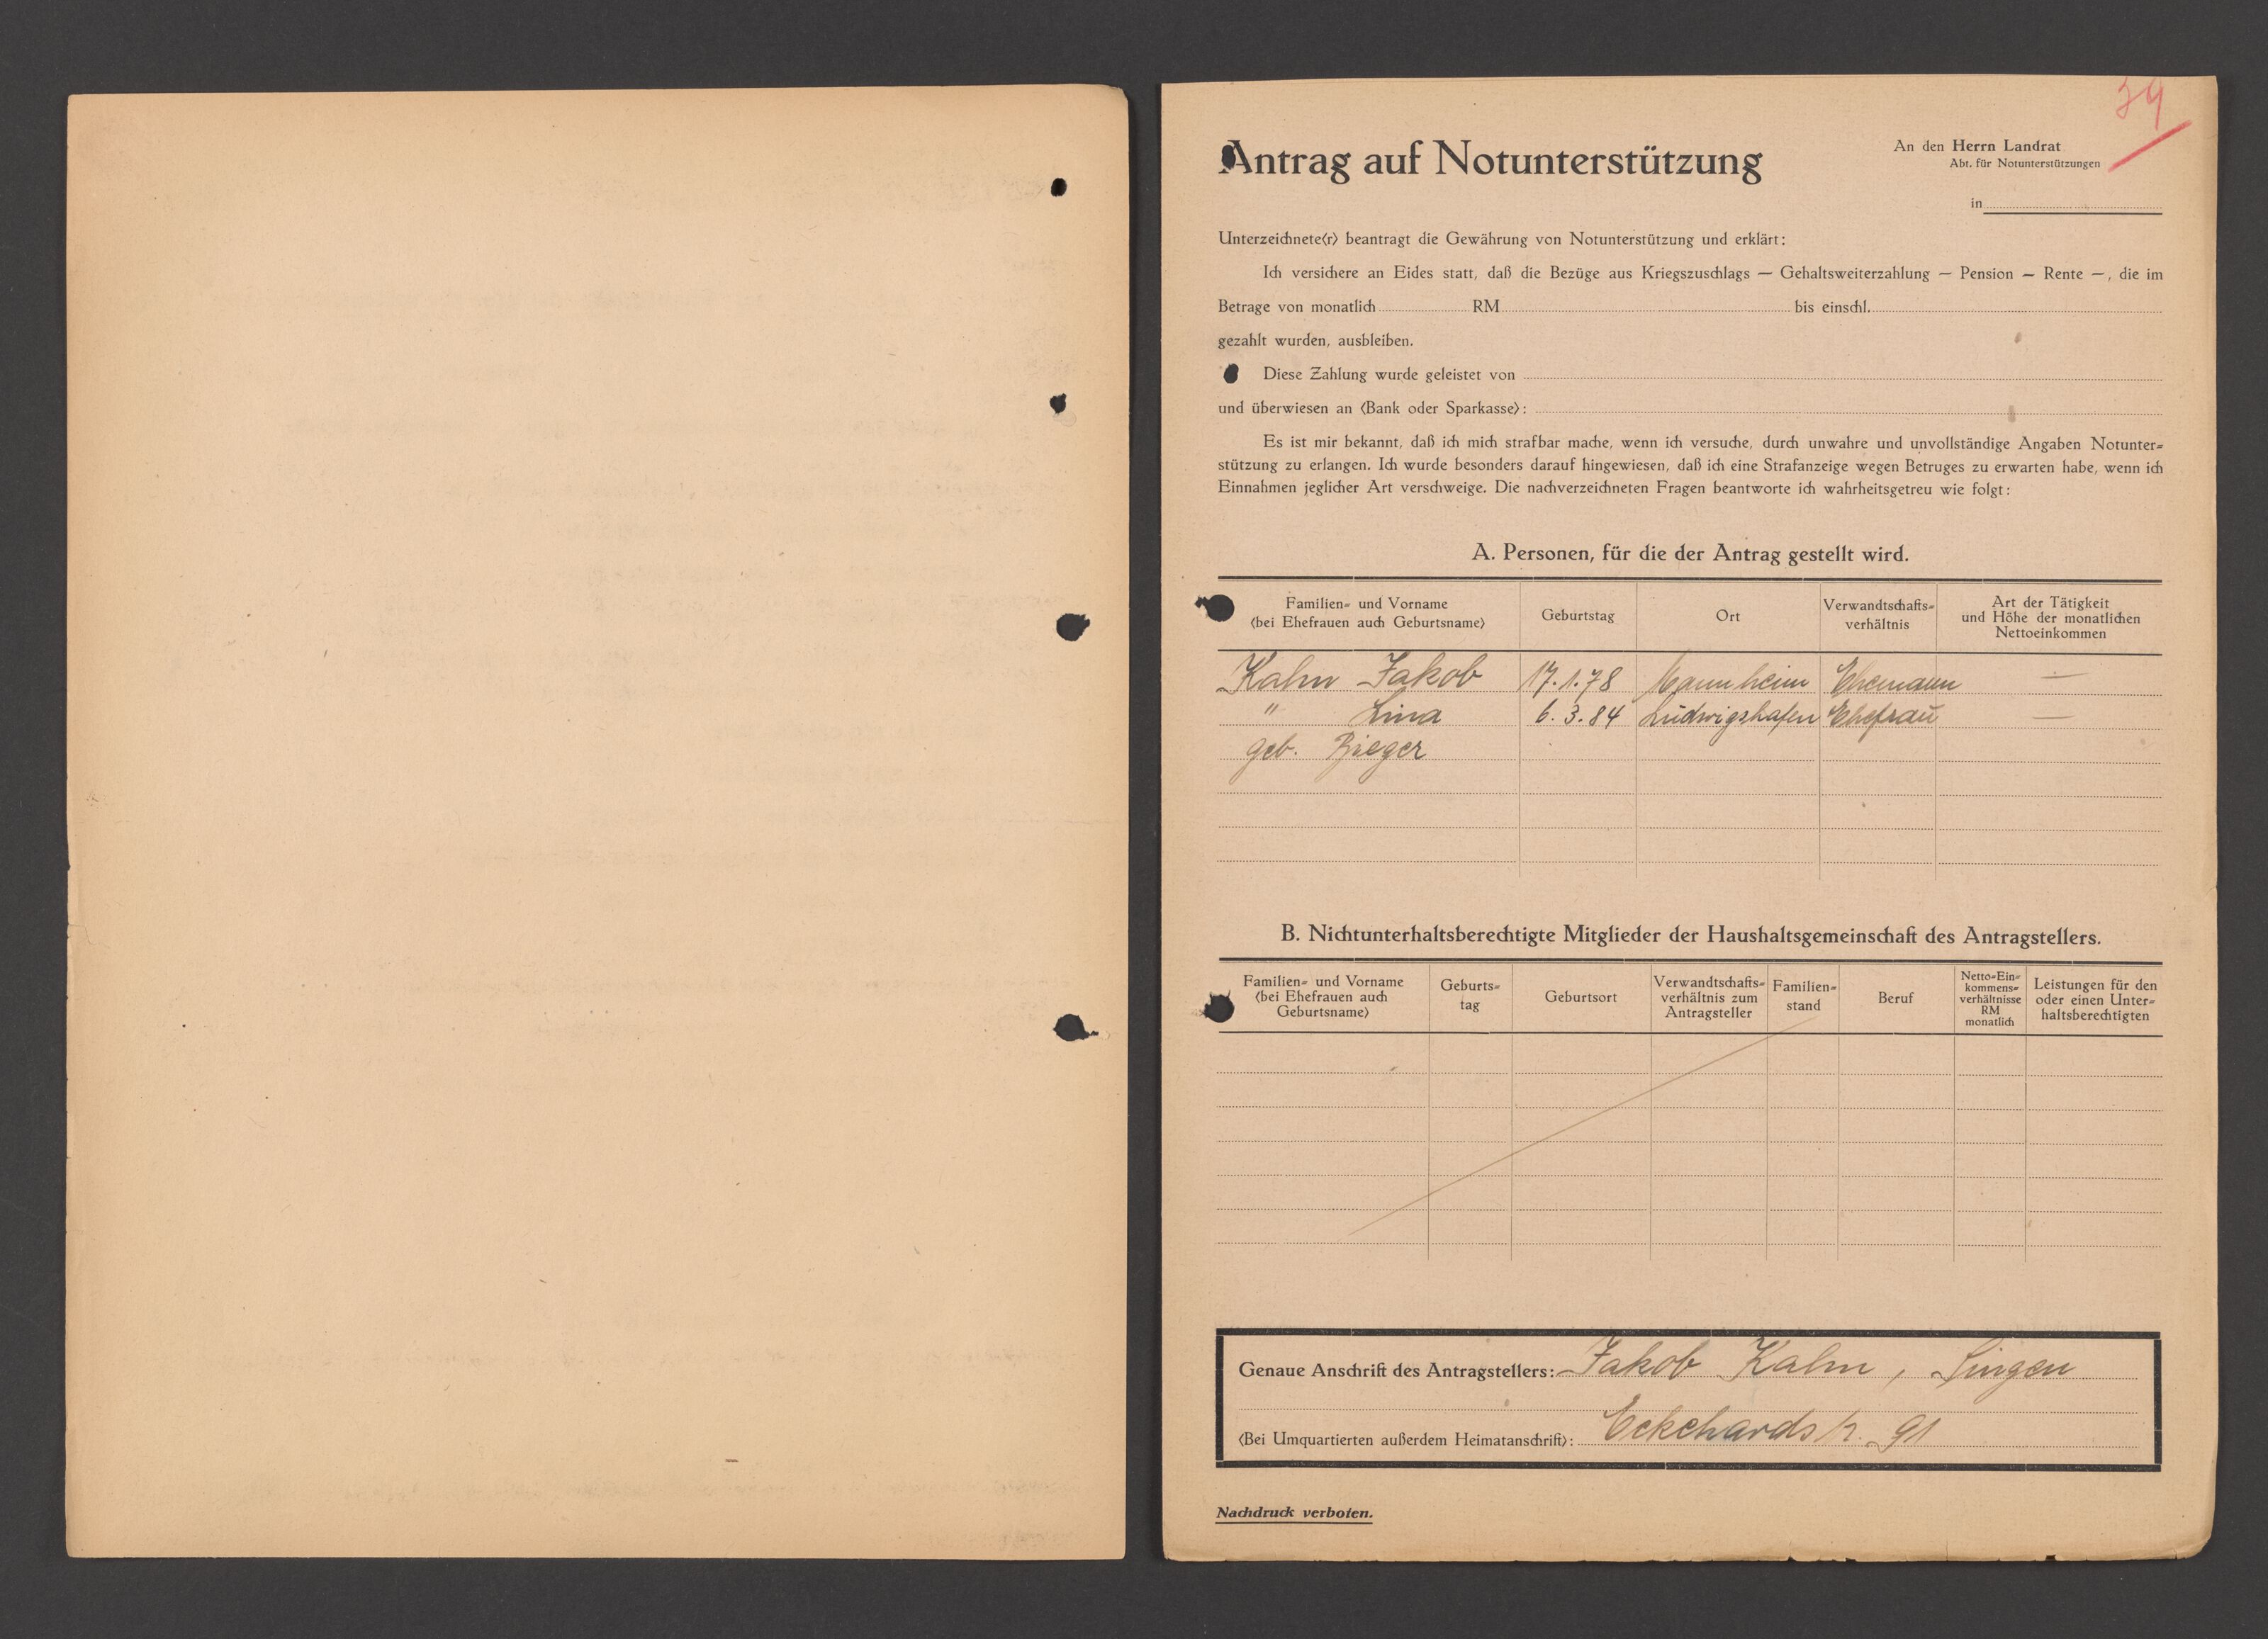 39
Antrag auf Notunterstützung
An den Herrn Landrat
Abt. für Notunterstützungen
in
Unterzeichnete(r) beantragt die Gewährung von Notunterstützung und erklärt:
Ich versichere an Eides statt, daß die Bezüge aus Kriegszuschlags — Gehaltsweiterzahlung — Pension — Rente —, die im
Betrage von monatlich RM bis einschl.
gezahlt wurden, ausbleiben.
Diese Zahlung wurde geleistet von
und überwiesen an (Bank oder Sparkasse):
Es ist mir bekannt, daß ich mich strafbar mache, wenn ich versuche, durch unwahre und unvollständige Angaben Notunter-
stützung zu erlangen. Ich wurde besonders darauf hingewiesen, daß ich eine Strafanzeige wegen Betruges zu erwarten habe, wenn ich
Einnahmen jeglicher Art verschweige. Die nachverzeichneten Fragen beantworte ich wahrheitsgetreu wie folgt:
A. Personen, für die der Antrag gestellt wird.
Familien- und Vorname
(bei Ehefrauen auch Geburtsname)
Geburtstag
Ort
Verwandtschafts-
verhältnis
Art der Tätigkeit
und Höhe der monatlichen
Nettoeinkommen
Kahn Jakob 17.1.78 Mannheim Ehemann —
" Lina 6.3.84 Ludwigshafen Ehefrau —
geb. Rieger
B. Nichtunterhaltsberechtigte Mitglieder der Haushaltsgemeinschaft des Antragstellers.
Familien- und Vorname
(bei Ehefrauen auch
Geburtsname)
Geburts-
tag
Geburtsort
Verwandtschafts-
verhältnis zum
Antragsteller
Familien-
stand
Beruf
Netto-Ein-
kommens-
verhältnisse
RM
monatlich
Leistungen für den
oder einen Unter-
haltsberechtigten
Genaue Anschrift des Antragstellers: Jakob Kahn, Singen
(Bei Umquartierten außerdem Heimatanschrift): Eckehardstr. 91
Nachdruck verboten.